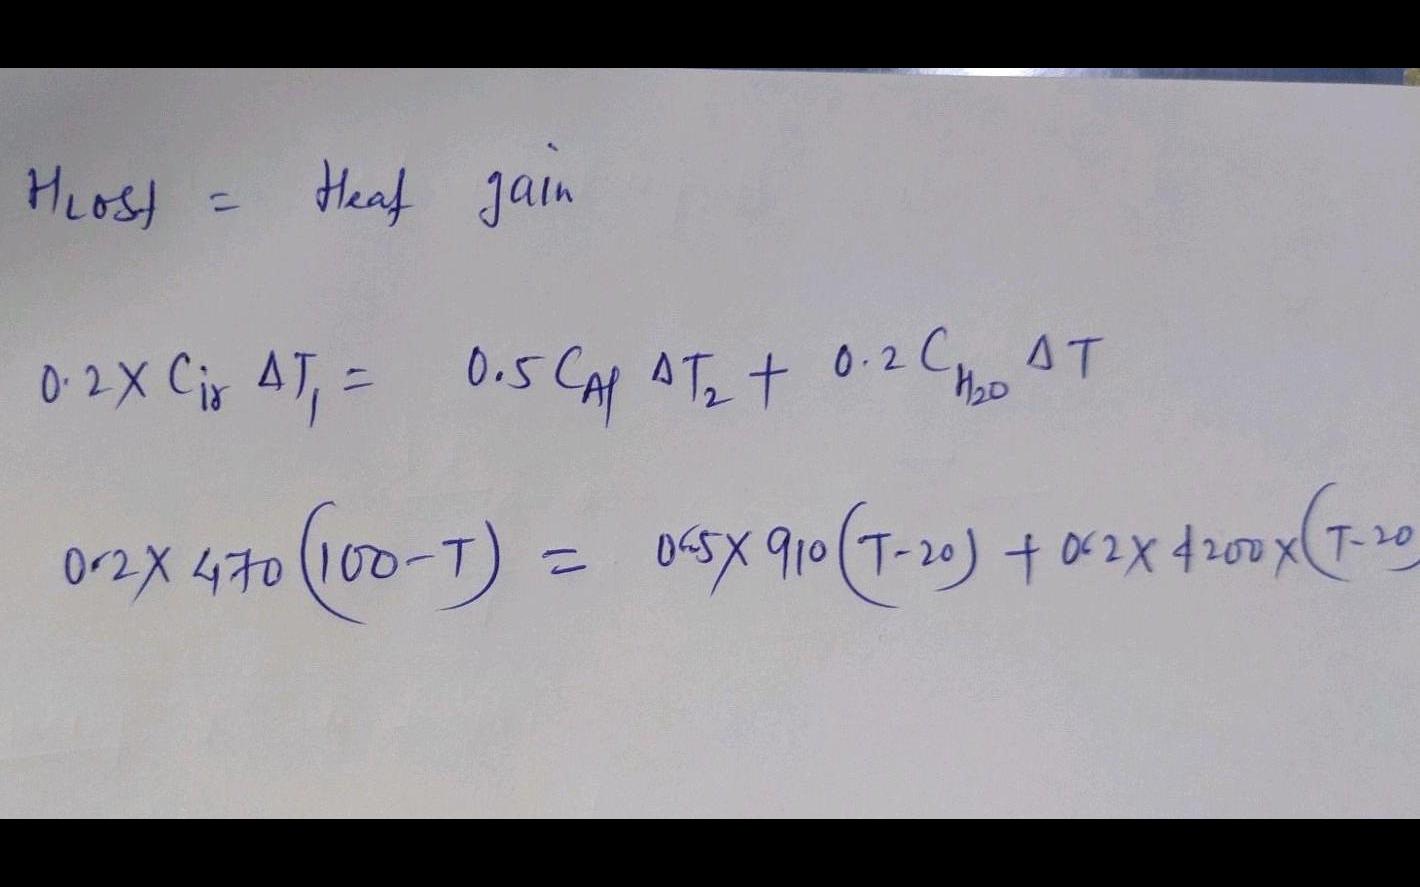 HLost = Heat gain
0.2 X Cir ΔT₁ = 0.5 CAl ΔT₂ + 0.2 CH₂O ΔT
0.2 X 470 (100-T) = 0.5 X 910 (T-20) + 0.2 X 4200 x (T-20